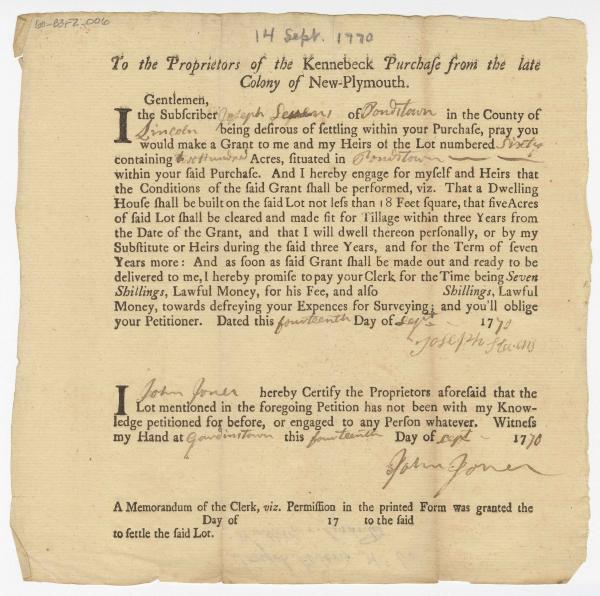 60-83F2.006
14 Sept. 1770
To the Proprietors of the Kennebeck Purchaſe from the late
Colony of New-Plymouth.
Gentlemen,
I the Subſcriber Joseph Stevens of Pondstown in the County of
Lincoln being deſirous of ſettling within your Purchaſe, pray you
would make a Grant to me and my Heirs of the Lot numbered Sixty
containing two Hundred Acres, ſituated in Pondstown
within your ſaid Purchaſe. And I hereby engage for myſelf and Heirs that
the Conditions of the ſaid Grant ſhall be performed, viz. That a Dwelling
Houſe ſhall be built on the ſaid Lot not leſs than 18 Feet ſquare, that five Acres
of ſaid Lot ſhall be cleared and made fit for Tillage within three Years from
the Date of the Grant, and that I will dwell thereon perſonally, or by my
Subſtitute or Heirs during the ſaid three Years, and for the Term of ſeven
Years more: And as ſoon as ſaid Grant ſhall be made out and ready to be
delivered to me, I hereby promiſe to pay your Clerk, for the Time being Seven
Shillings, Lawful Money, for his Fee, and alſo Shillings, Lawful
Money, towards defreying your Expences for Surveying; and you'll oblige
your Petitioner. Dated this fourteenth Day of sept 1770
Joseph Stevens
I John Jones hereby Certify the Proprietors aforeſaid that the
Lot mentioned in the foregoing Petition has not been with my Know-
ledge petitioned for before, or engaged to any Perſon whatever. Witneſs
my Hand at Gardinstown this fourteenth Day of sept 1770
John Jones
A Memorandum of the Clerk, viz. Permiſſion in the printed Form was granted the
Day of 17 to the ſaid
to ſettle the ſaid Lot.